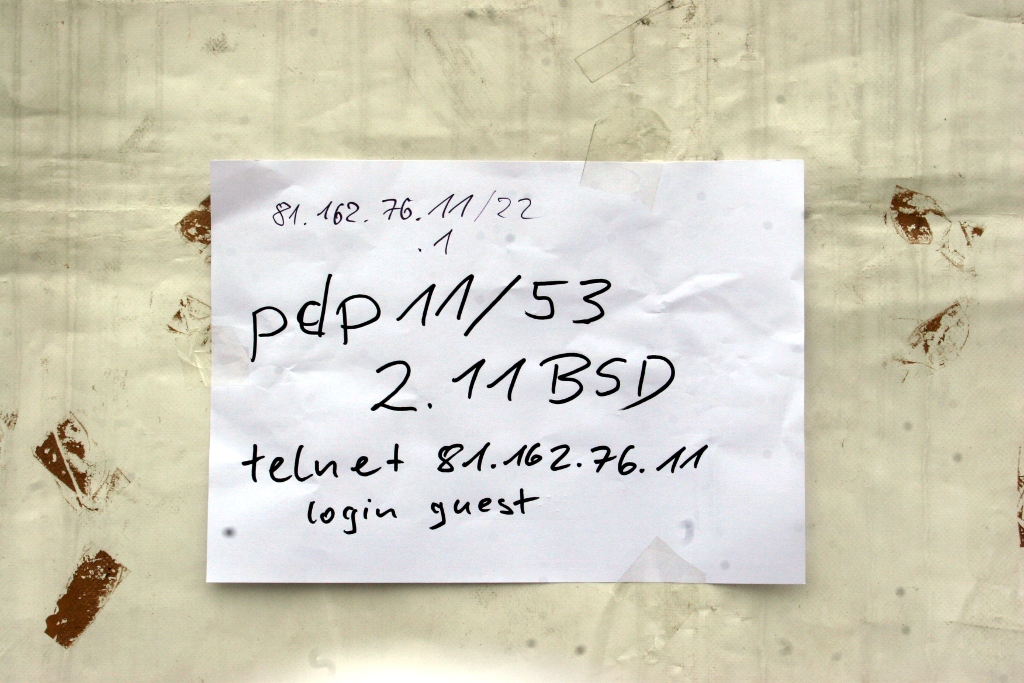 81.162.76.11/22
.1
pdp 11/53
2.11 BSD
telnet 81.162.76.11
login guest